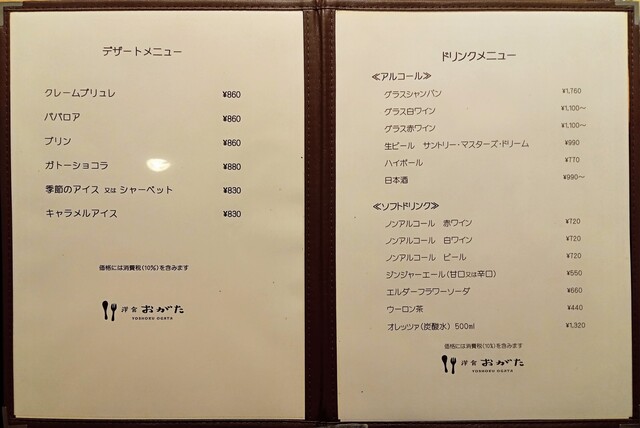 デザートメニュー
クレームブリュレ ¥860
ババロア ¥860
プリン ¥860
ガトーショコラ ¥880
季節のアイス 又は シャーベット ¥830
キャラメルアイス ¥830
価格には消費税(10%)を含みます
洋食 おがた
YOSHOKU OGATA
ドリンクメニュー
≪アルコール≫
グラスシャンパン ¥1,760
グラス白ワイン ¥1,100～
グラス赤ワイン ¥1,100～
生ビール サントリー・マスターズ・ドリーム ¥990
ハイボール ¥770
日本酒 ¥990～
≪ソフトドリンク≫
ノンアルコール 赤ワイン ¥720
ノンアルコール 白ワイン ¥720
ノンアルコール ビール ¥720
ジンジャーエール(甘口又は辛口) ¥550
エルダーフラワーソーダ ¥660
ウーロン茶 ¥440
オレッツァ(炭酸水) 500ml ¥1,320
価格には消費税(10%)を含みます
洋食 おがた
YOSHOKU OGATA